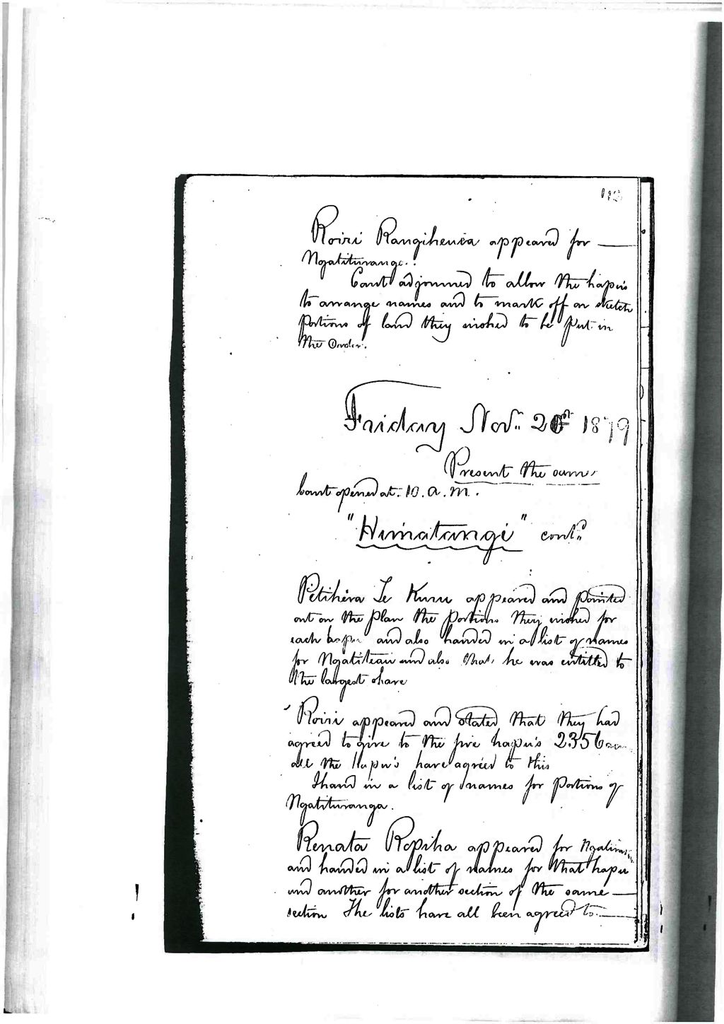 Roiri Rangiheuea appeared for
Ngatituranga.
Court adjourned to allow the hapu's
to arrange names and to mark off on sketch
Portions of land they wished to be put in
the Order.
Friday Nov. 1879
Present the same
Court opened at 10. a.m.
"Himatangi" contd
Pitihira Te Kuru appeared and pointed
out on the plan the portions they wished for
each hapu and also handed in a list of names
for Ngatiteau and also that he was entitled to
the largest share
Roiri appeared and stated that they had
agreed to give to the five hapu's 2356
all the Hapu's have agreed to this
I hand in a list of names for portions of
Ngatituranga.
Renata Ropiha appeared for
and handed in a list of names for that hapu
and another for another section of the same
section The lists have all been agreed to.